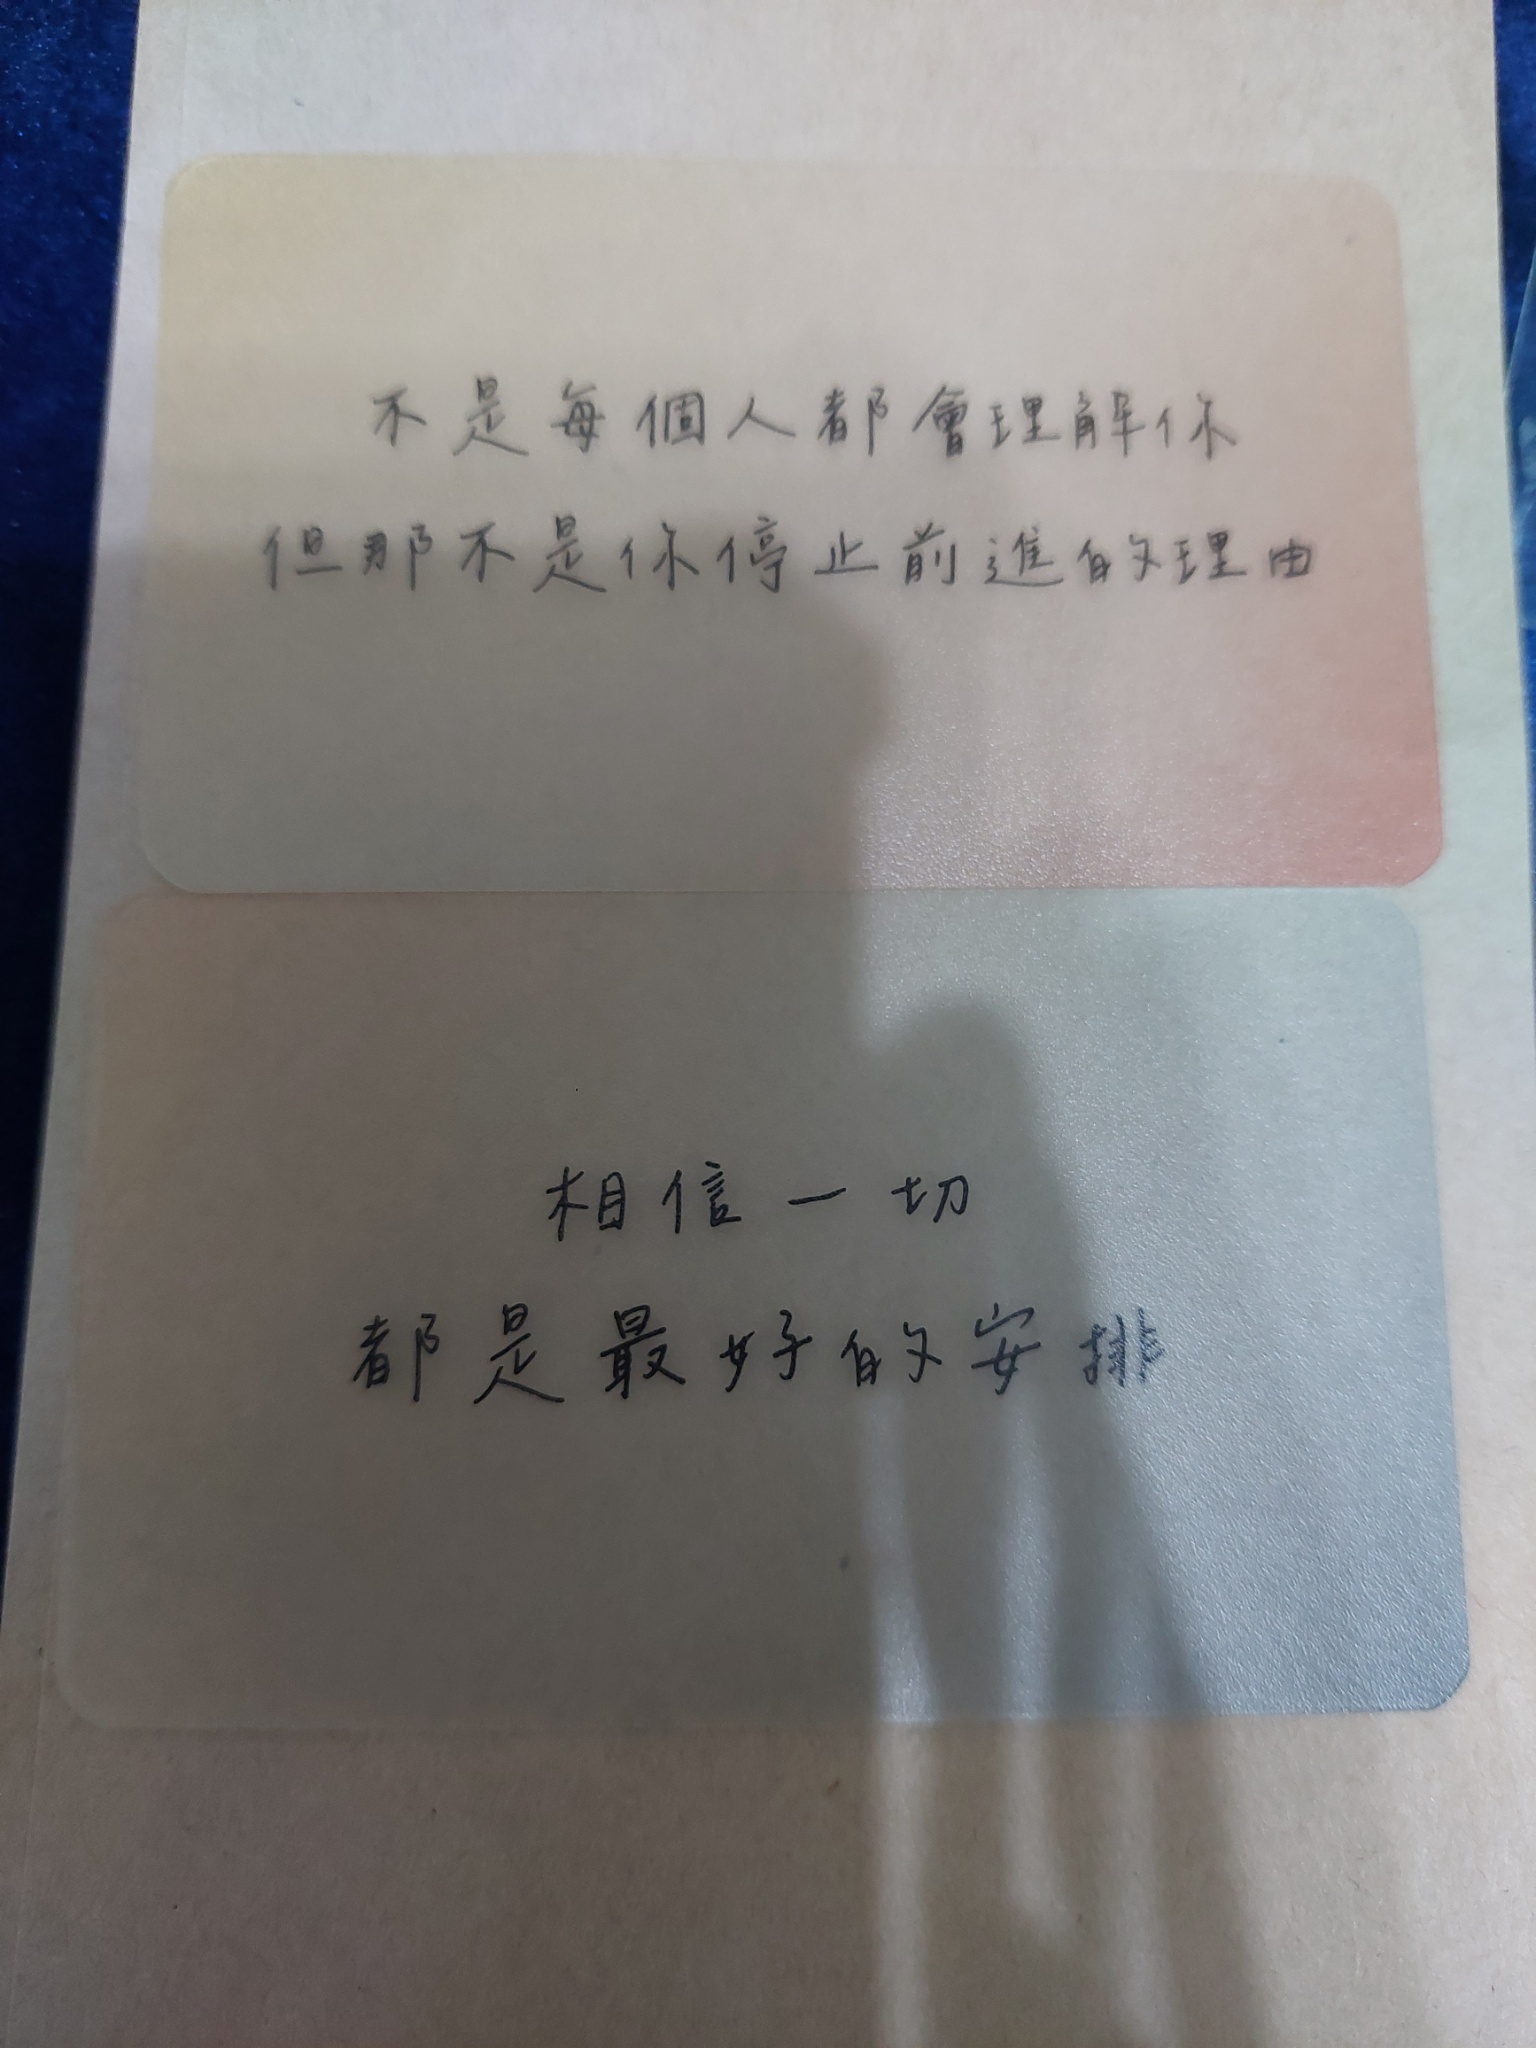 不是每個人都會理解你
但那不是你停止前進的理由
相信一切
都是最好的安排